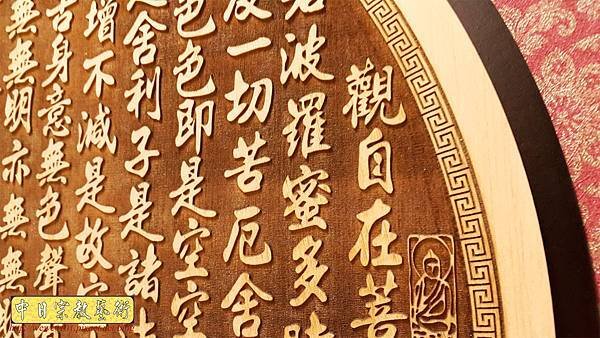 觀自在菩
若波羅蜜多時
度一切苦厄舍
色色即是空空
是舍利子是諸法
增不減是故空
舌身意無色聲
無無明亦無無明
中日宗教藝術